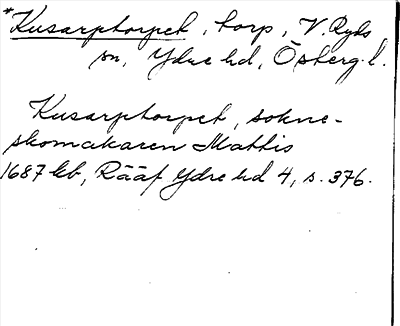 *Kusarptorpet, torp, V. Ryds
sn, Ydre hd, Österg. l.
Kusarptorpet, sokne-
skomakaren Mattis
1687 kb, Rääf Ydre hd 4, s. 376.